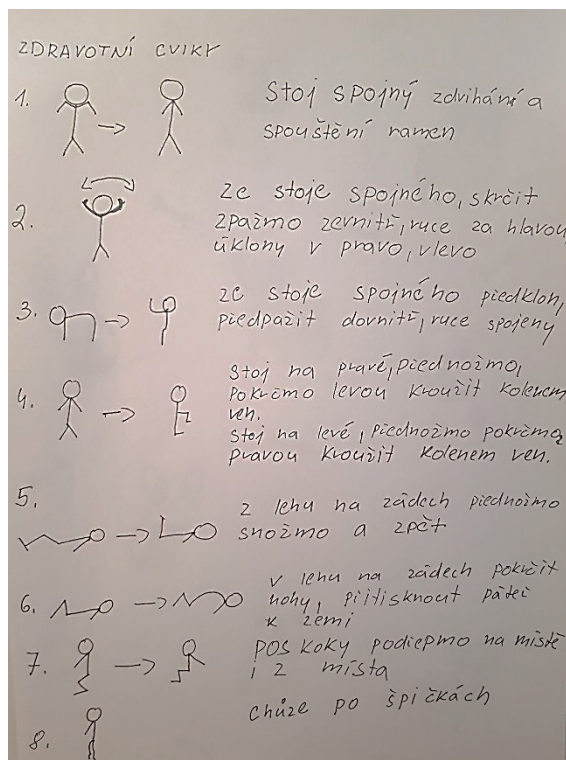 ZDRAVOTNÍ CVIKY
1. Stoj spojný zdvihání a
spouštění ramen
2. ze stoje spojného, skrčit
zpažmo zevnitř, ruce za hlavou
úklony v pravo, vlevo
3. ze stoje spojného předklon,
předpažit dovnitř, ruce spojeny
4. Stoj na pravé, přednožmo,
pokrčmo levou kroužit kolenem
ven.
Stoj na levé, přednožmo pokrčmo,
pravou kroužit kolenem ven.
5. z lehu na zádech přednožmo
snožmo a zpět
6. v lehu na zádech pokrčit
nohy, přitisknout páteř
k zemi
7. POSKOKY podřepmo na místě
i z místa
8. chůze po špičkách